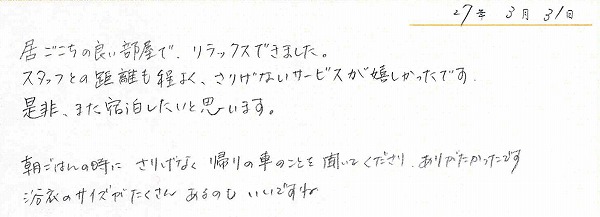 27年 3月 31日
居ごこちの良い部屋で、リラックスできました。
スタッフとの距離も程よく、さりげないサービスが嬉しかったです.
是非、また宿泊したいと思います。
朝ごはんの時に さりげなく 帰りの車のことを 聞いてくださり、ありがたかったです
浴衣のサイズがたくさん あるのも いいですね